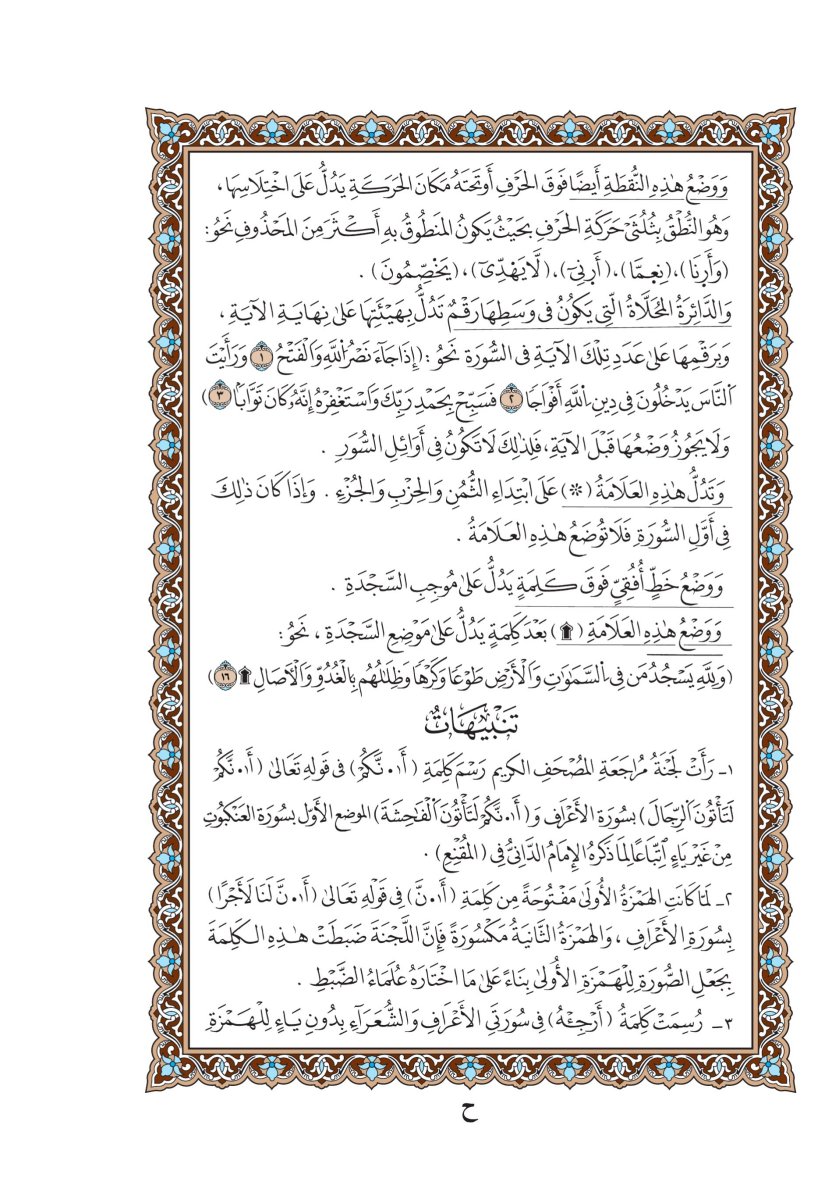 وَوَضْعُ هٰذِهِ النُّقطَةِ أَيضًا فَوقَ الحَرفِ أَوتَحتَهُ مَكَانَ الحَرَكَةِ يَدُلُّ عَلَى اخْتِلَاسِهَا ،
وَهُوَ النُّطْقُ بِثُلُثَيْ حَرَكَةِ الحَرْفِ بِحَيْثُ يَكُونُ المَنطُوقُ بِهِ أَكْثَرَ مِنَ المَحْذُوفِ نَحْوُ :
(وَأَرِنَا) ، (نِعِمَّا) ، (أَرِنِيٓ) ، (لَّا يَهْدِّىٓ) ، (يَخْصِّمُونَ) .
وَالدَّائِرَةُ المُحَلَّاةُ الَّتِي يَكُونُ فِى وَسَطِهَا رَقْمٌ تَدُلُّ بِهَيْئَتِهَا عَلَىٰ نِهَايَةِ الآيَةِ ،
وَبِرَقْمِهَا عَلَىٰ عَدَدِ تِلْكَ الآيَةِ فِى السُّورَة نَحْوُ : (إِذَا جَآءَ نَصْرُ اُ۬للَّهِ وَالْفَتْحُ ١ وَرَأَيْتَ
اَ۬لنَّاسَ يَدْخُلُونَ فِى دِينِ اِ۬للَّهِ أَفْوَاجٗا ٢ فَسَبِّحْ بِحَمْدِ رَبِّكَ وَاسْتَغْفِرْهُ إِنَّهُۥ كَانَ تَوَّابَۢا ٣)
وَلَا يَجُوزُ وَضْعُهَا قَبْلَ الآيَةِ، فَلِذٰلِكَ لَا تَكُونُ فِى أَوَائِلِ السُّوَرِ .
وَتَدُلُّ هٰذِهِ العَلَامَةُ (۞) عَلَى ابْتِدَاءِ الثُّمُنِ وَالحِزْبِ وَالجُزْءِ . وَإِذَا كَانَ ذٰلِكَ
فِى أَوَّلِ السُّورَةِ فَلَا تُوضَعُ هٰذِهِ العَلَامَةُ .
وَوَضْعُ خَطٍّ أُفُقِيٍّ فَوْقَ كَلِمَةٍ يَدُلُّ عَلَىٰ مُوجِبِ السَّجْدَةِ .
وَوَضْعُ هٰذِهِ العَلَامَةِ (۩) بَعْدَ كَلِمَةٍ يَدُلُّ عَلَىٰ مَوْضِعِ السَّجْدَةِ ، نَحْوُ :
(وَلِلَّهِ يَسْجُدُ مَن فِى اِ۬لسَّمَٰوَٰتِ وَالْأَرْضِ طَوْعٗا وَكَرْهٗا وَظِلَٰلُهُم بِالْغُدُوِّ وَالْأٓصَالِ۩ ١٦)
تَنْبِيهَاتٌ
١- رَأَتْ لَجْنَةُ مُرَاجَعَةِ المُصْحَفِ الكريم رَسْمَ كَلِمَةِ (أَا۪نَّكُمْ) فى قَولِهِ تَعَالىٰ (أَا۪نَّكُمْ
لَتَأْتُونَ اَ۬لرِّجَالَ) بِسُورَةِ الأَعْرَافِ وَ(أَا۪نَّكُمْ لَتَأْتُونَ اَ۬لْفَٰحِشَةَ) الموضع الأوّل بسُورَةِ العَنْكَبُوتِ
مِنْ غَيْرِ يَاءٍ اتِّبَاعًا لِمَا ذَكَرَهُ الإِمَامُ الدَّانِيُّ فِى (المُقْنِعِ) .
٢- لَمَّا كَانَتِ الهَمْزَةُ الأُولَىٰ مَفْتُوحَةً مِن كَلِمَةِ (أَا۪نَّ) فِى قَوْلِهِ تَعَالَىٰ (أَا۪نَّ لَنَا لَأَجْرًا)
بِسُورَةِ الأَعْرَافِ ، وَالهَمْزَةُ الثَّانِيَةُ مَكْسُورَةً فَإِنَّ اللَّجْنَةَ ضَبَطَتْ هٰذِهِ الكَلِمَةَ
بِجَعْلِ الصُّورَةِ لِلْهَمْزَةِ الأُولَىٰ بِنَاءً عَلَىٰ مَا اخْتَارَهُ عُلَمَاءُ الضَّبْطِ .
٣- رُسِمَتْ كَلِمَةُ (أَرْجِئْهُ) فِى سُورَتَيِ الأَعْرَافِ وَالشُّعَرَآءِ بِدُونِ يَاءٍ لِلْهَمْزَةِ
ح